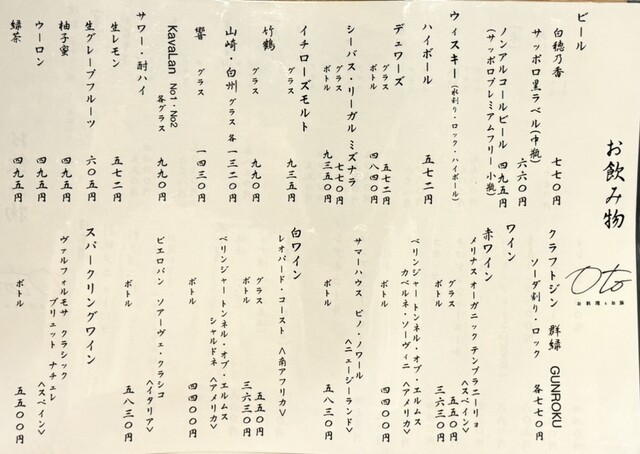 お飲み物
Oto
ビール
白穂乃香 七七〇円
サッポロ黒ラベル(中瓶) 六六〇円
ノンアルコールビール 四九五円
(サッポロプレミアムフリー 小瓶)
ウィスキー (水割り・ロック・ハイボール)
ハイボール 五七二円
デュワーズ
グラス 五七二円
ボトル 四八四〇円
シーバス・リーガル ミズナラ
グラス 七七〇円
ボトル 九三五〇円
イチローズモルト
グラス 九三五円
竹鶴
グラス 九九〇円
山崎・白州 グラス 各一三二〇円
響 グラス 一四三〇円
KavaLan No1・No2
各グラス 九九〇円
サワー・酎ハイ
生レモン 五七二円
生グレープフルーツ 六〇五円
柚子蜜 四九五円
ウーロン 四九五円
緑茶 四九五円
クラフトジン 群緑 GUNROKU
ソーダ割り・ロック 各七七〇円
ワイン
赤ワイン
メリナス オーガニック テンプラニーリョ
<スペイン>
グラス 五五〇円
ボトル 三六三〇円
ベリンジャー トンネル・オブ・エルムス
カベルネ・ソーヴィニ <アメリカ>
サマーハウス ピノ・ノワール
<ニュージーランド>
ボトル 五八三〇円
白ワイン
レオパード・コースト <南アフリカ>
グラス 五五〇円
ボトル 三六三〇円
ベリンジャー トンネル・オブ・エルムス
シャルドネ <アメリカ>
ボトル 四四〇〇円
ピエロパン ソアーヴェ・クラシコ
<イタリア>
ボトル 五八三〇円
スパークリングワイン
ヴァルフォルモサ クラシック
ブリュット ナチュレ
<スペイン>
ボトル 五五〇〇円